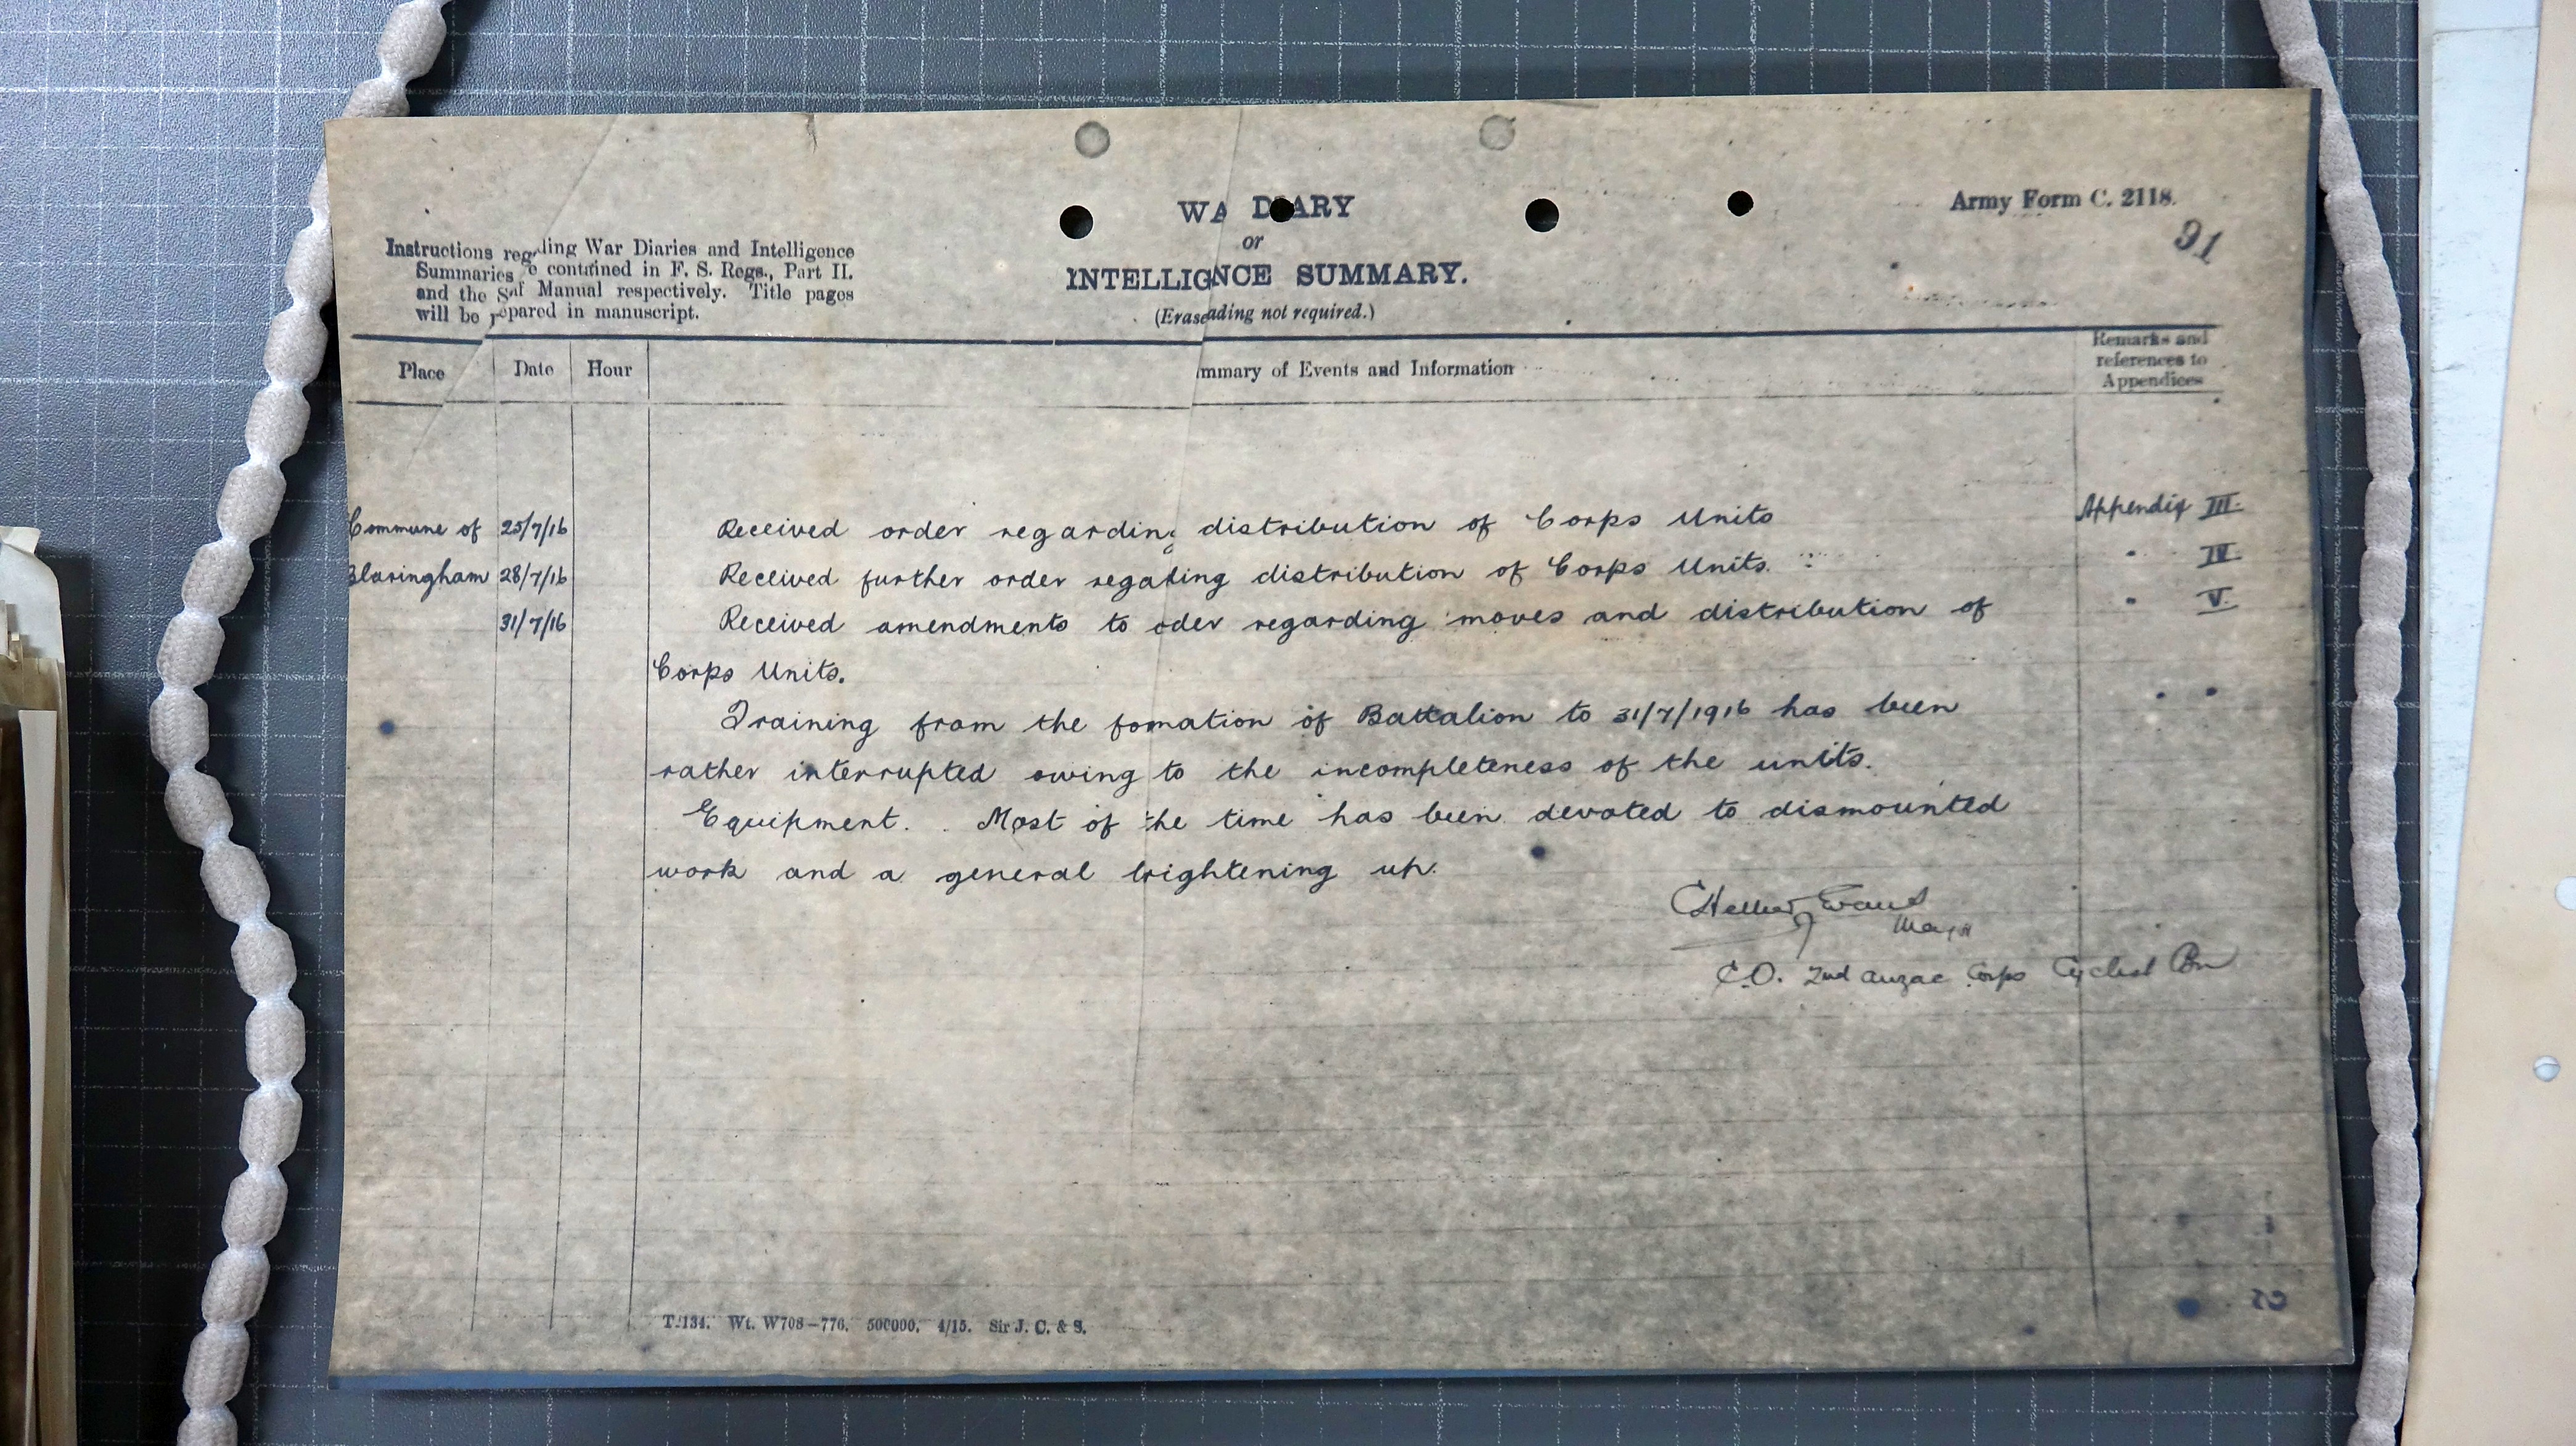 WA DIARY
or
INTELLIGNCE SUMMARY.
(Eraseading not required.)
Army Form C. 2118.
91
Instructions regding War Diaries and Intelligence
Summaries e contained in F. S. Regs., Part II.
and the Saf Manual respectively. Title pages
will be repared in manuscript.
Place Date Hour mmary of Events and Information Remarks and references to Appendices
Commune of 25/7/16 Received order regarding distribution of Corps Units Appendix III.
Blaringham 28/7/16 Received further order regading distribution of Corps Units. " IV.
31/7/16 Received amendments to oder regarding moves and distribution of " V.
Corps Units.
Training from the fomation of Battalion to 31/7/1916 has been
rather interrupted owing to the incompleteness of the units.
Equipment. Most of the time has been devoted to dismounted
work and a general brightening up.
Evans
Major
C.O. 2nd Anzac Corps Cyclist Bn
T.134. Wt. W708—776. 500000. 4/15. Sir J. C. & S.